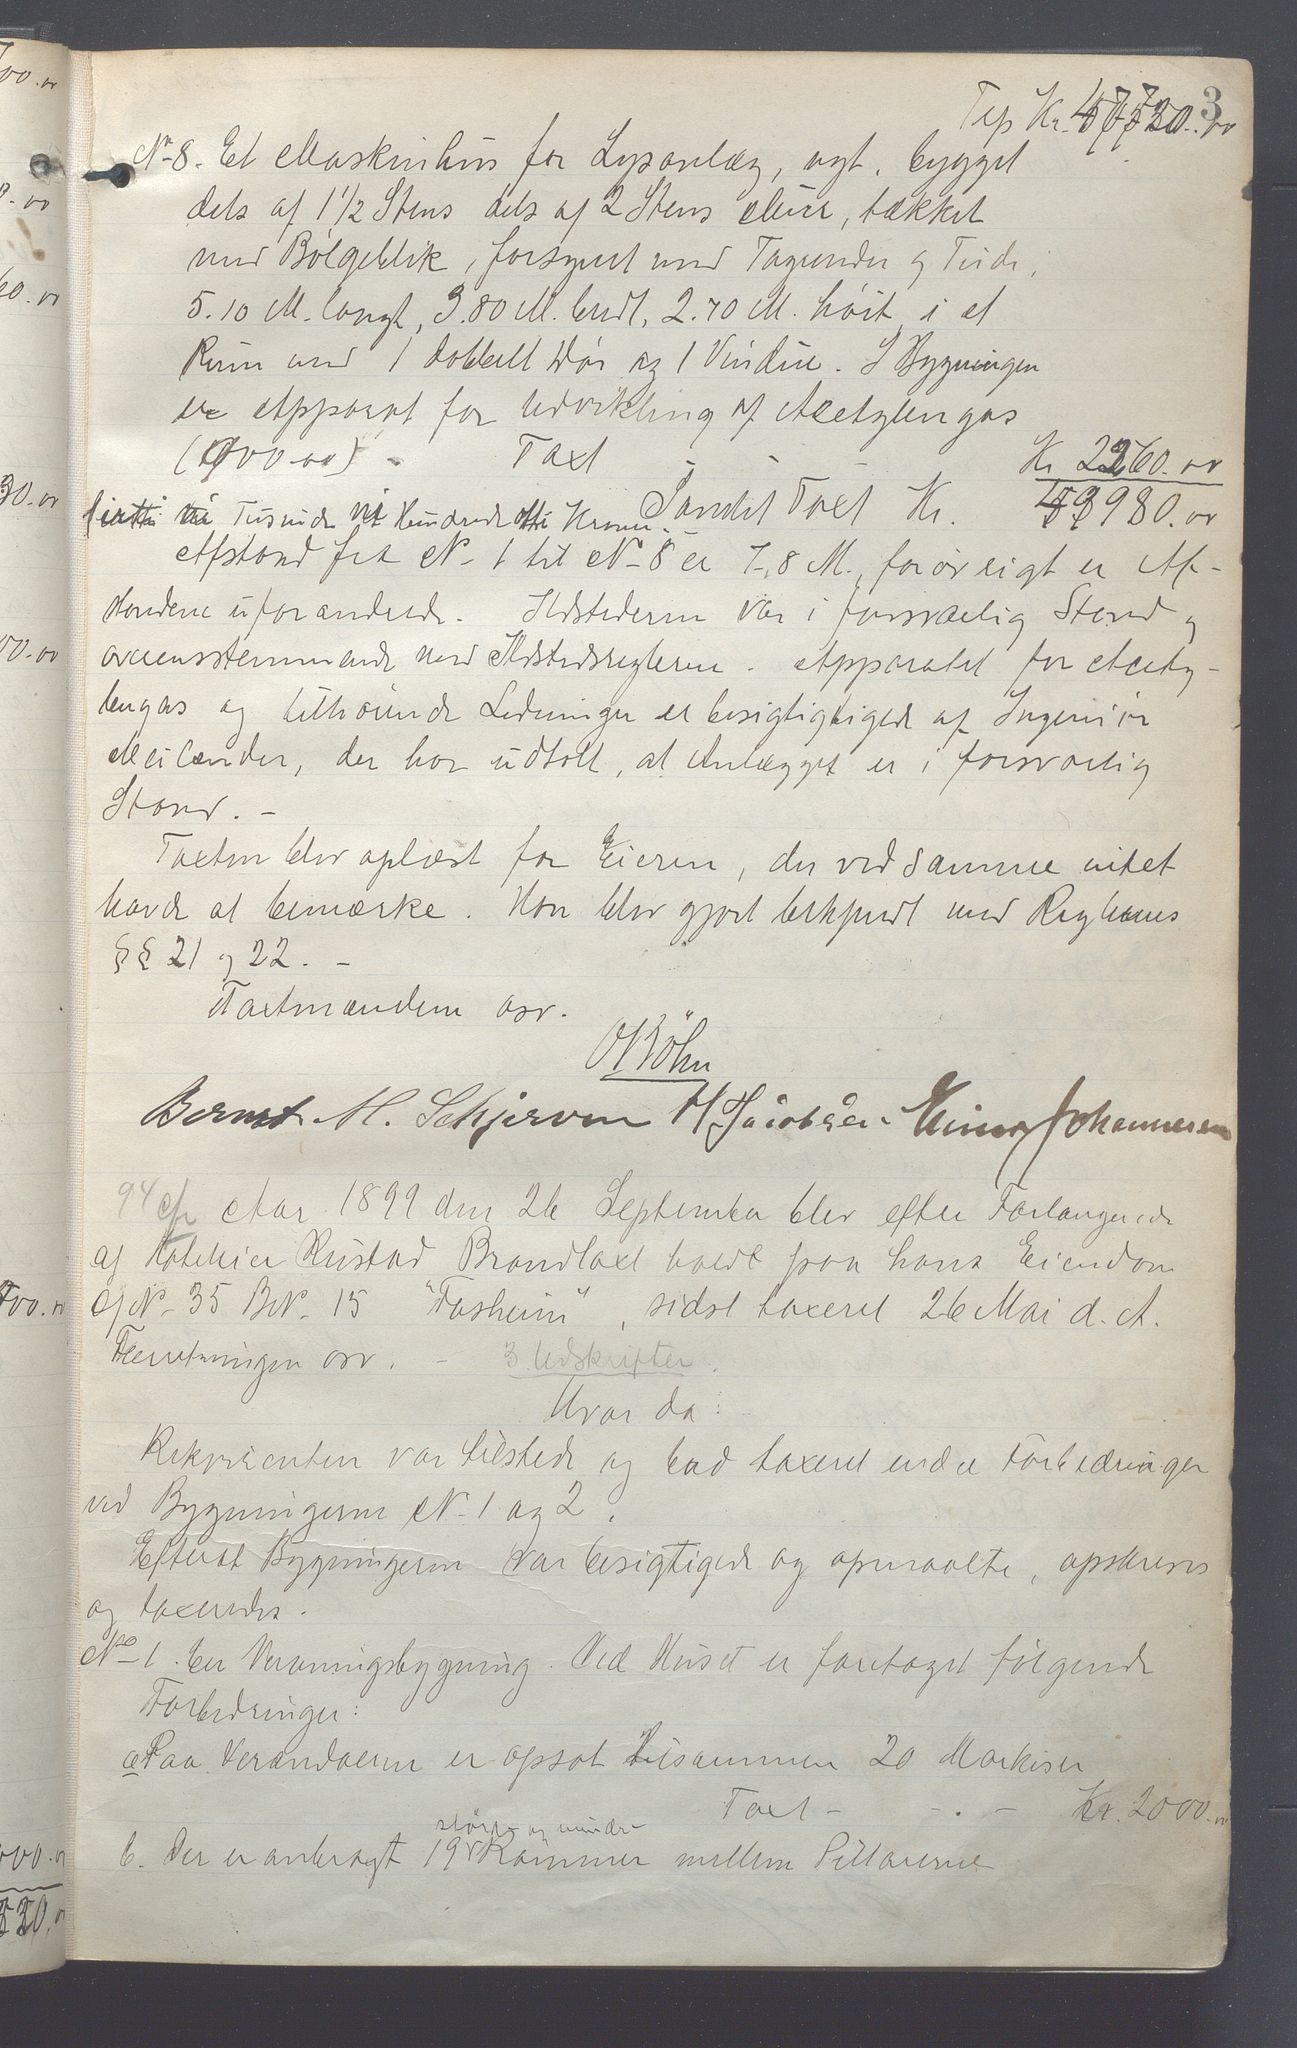 3
Tsp Kr. 47720.00
No 8. Et Maskinhus for Lysanlæg, nyt, bygget
dels af 1 1/2 Stens dels af 2 Stens Mur, tækket
med Bølgeblik, forsynet med Tagrender og
5.10 M. langt, 3.80 M. bredt, 2.70 M. høit, i et
Rum med 1 dobbelt Dør og 1 Vindue. I Bygningen
er Apparat for Udvikling af Acetylengas
Taxt Kr 2260.00
Samlet Taxt Kr. 49980.00
ni Tusinde ni Hundrede otti Kroner.
Afstand fra No 1 til No 8 er 7,8 M., forøvrigt er Af-
standene uforandrede. Ildstederne var i forsvarlig Stand og
overensstemmende med Ildstedsreglerne. Apparatet for Acety-
lengas og tilhørende Ledninger er besigtigtigede af Ingeniør
Meilænder, der har udtalt, at Anlægget er i forsvarlig
Stand. -
Taxten blev oplæst for Eieren, der ved samme intet
havde at bemærke. Han blev gjort bekjendt med Reglernes
§§ 21 og 22. -
Taxtmændene osv.
O Bøhn
Bernt M. Schjerven H Jacobsen Einar Johannesen
94 cfr Aar 1899 den 26 September blev efter Forlangende
af Hoteleier Rustad Brandtaxt holdt paa hans Eiendom
GNo 35 BNo 15 "Fasheim", sidst taxeret 26 Mai d. A.
Forretningen osv. - 3 Udskrifter.
Hvor da:
Rekvirenten var tilstede og bad taxeret endel Forbedringer
ved Bygningerne No 1 og 2.
Efterat Bygningerne var besigtigede og opmaalte, opskreves
og taxeredes.
No 1. En Vaaningsbygning. Ved Huset er foretaget følgende
Forbedringer:
a Paa Verandaerne er opsat tilsammen 20 Markiser
Taxt - - . - Kr. 2000.00
større og mindre
b. Der er anbragt 19 Rammer mellem Pillarerne